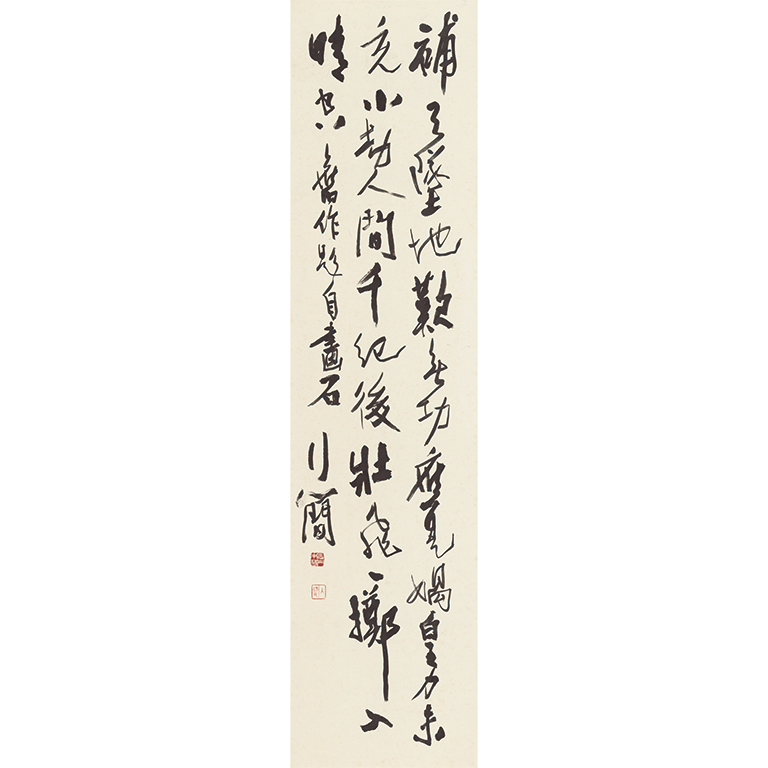 補天墜地歎無功應是媧皇力未
充小劫人間千紀後壯飛一擲入
晴空 舊作題自畫石 行簡